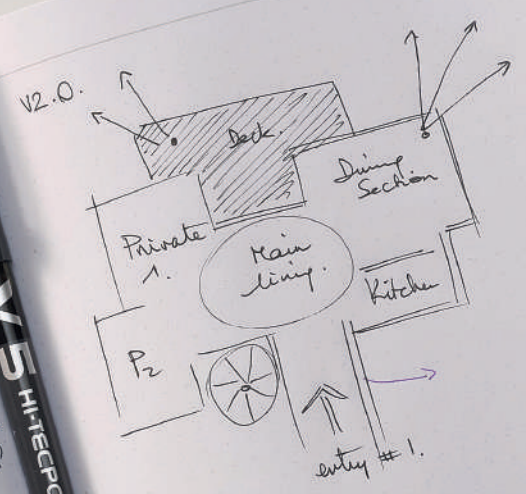 V2.0.
Deck.
Dining
Section
Private
1.
Main
living.
Kitchen
P2
entry #1.
V5
HI-TECPO